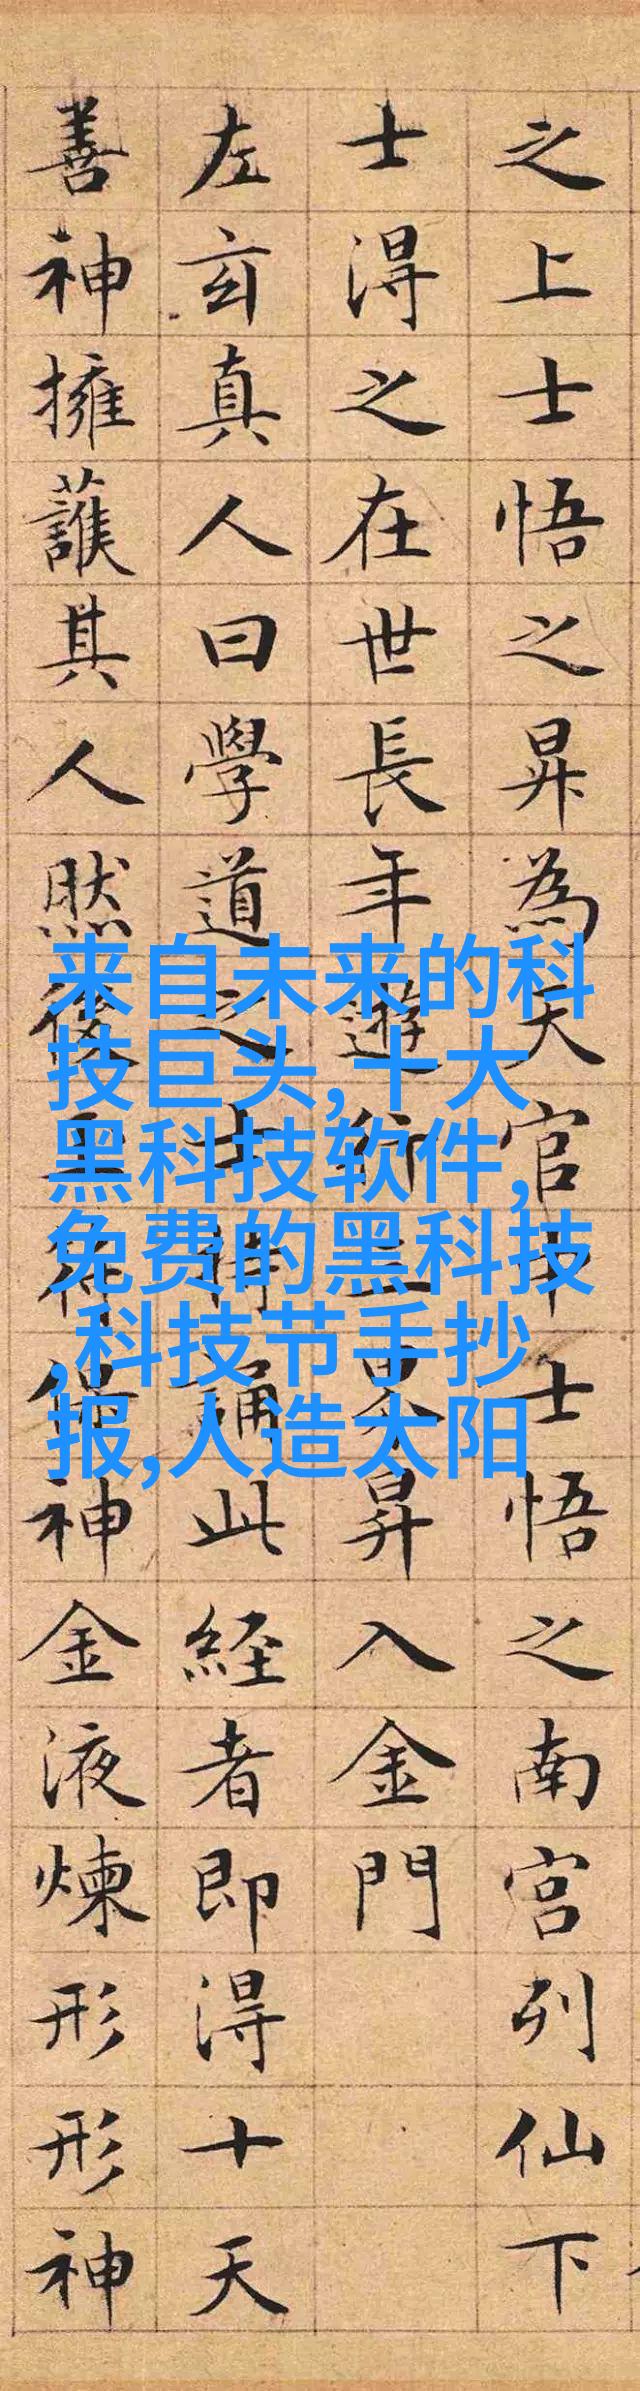 之上士悟之昇為天官中士悟之南宮列仙下
士淂之在世長年遊行三界昇入金門
左玄真人曰學道之士持誦此経者即淂十天
善神擁護其人然後玉符保神金液煉形形神
来自未来的科
技巨头,十大
黑科技软件,
免费的黑科技
,科技节手抄
报,人造太阳